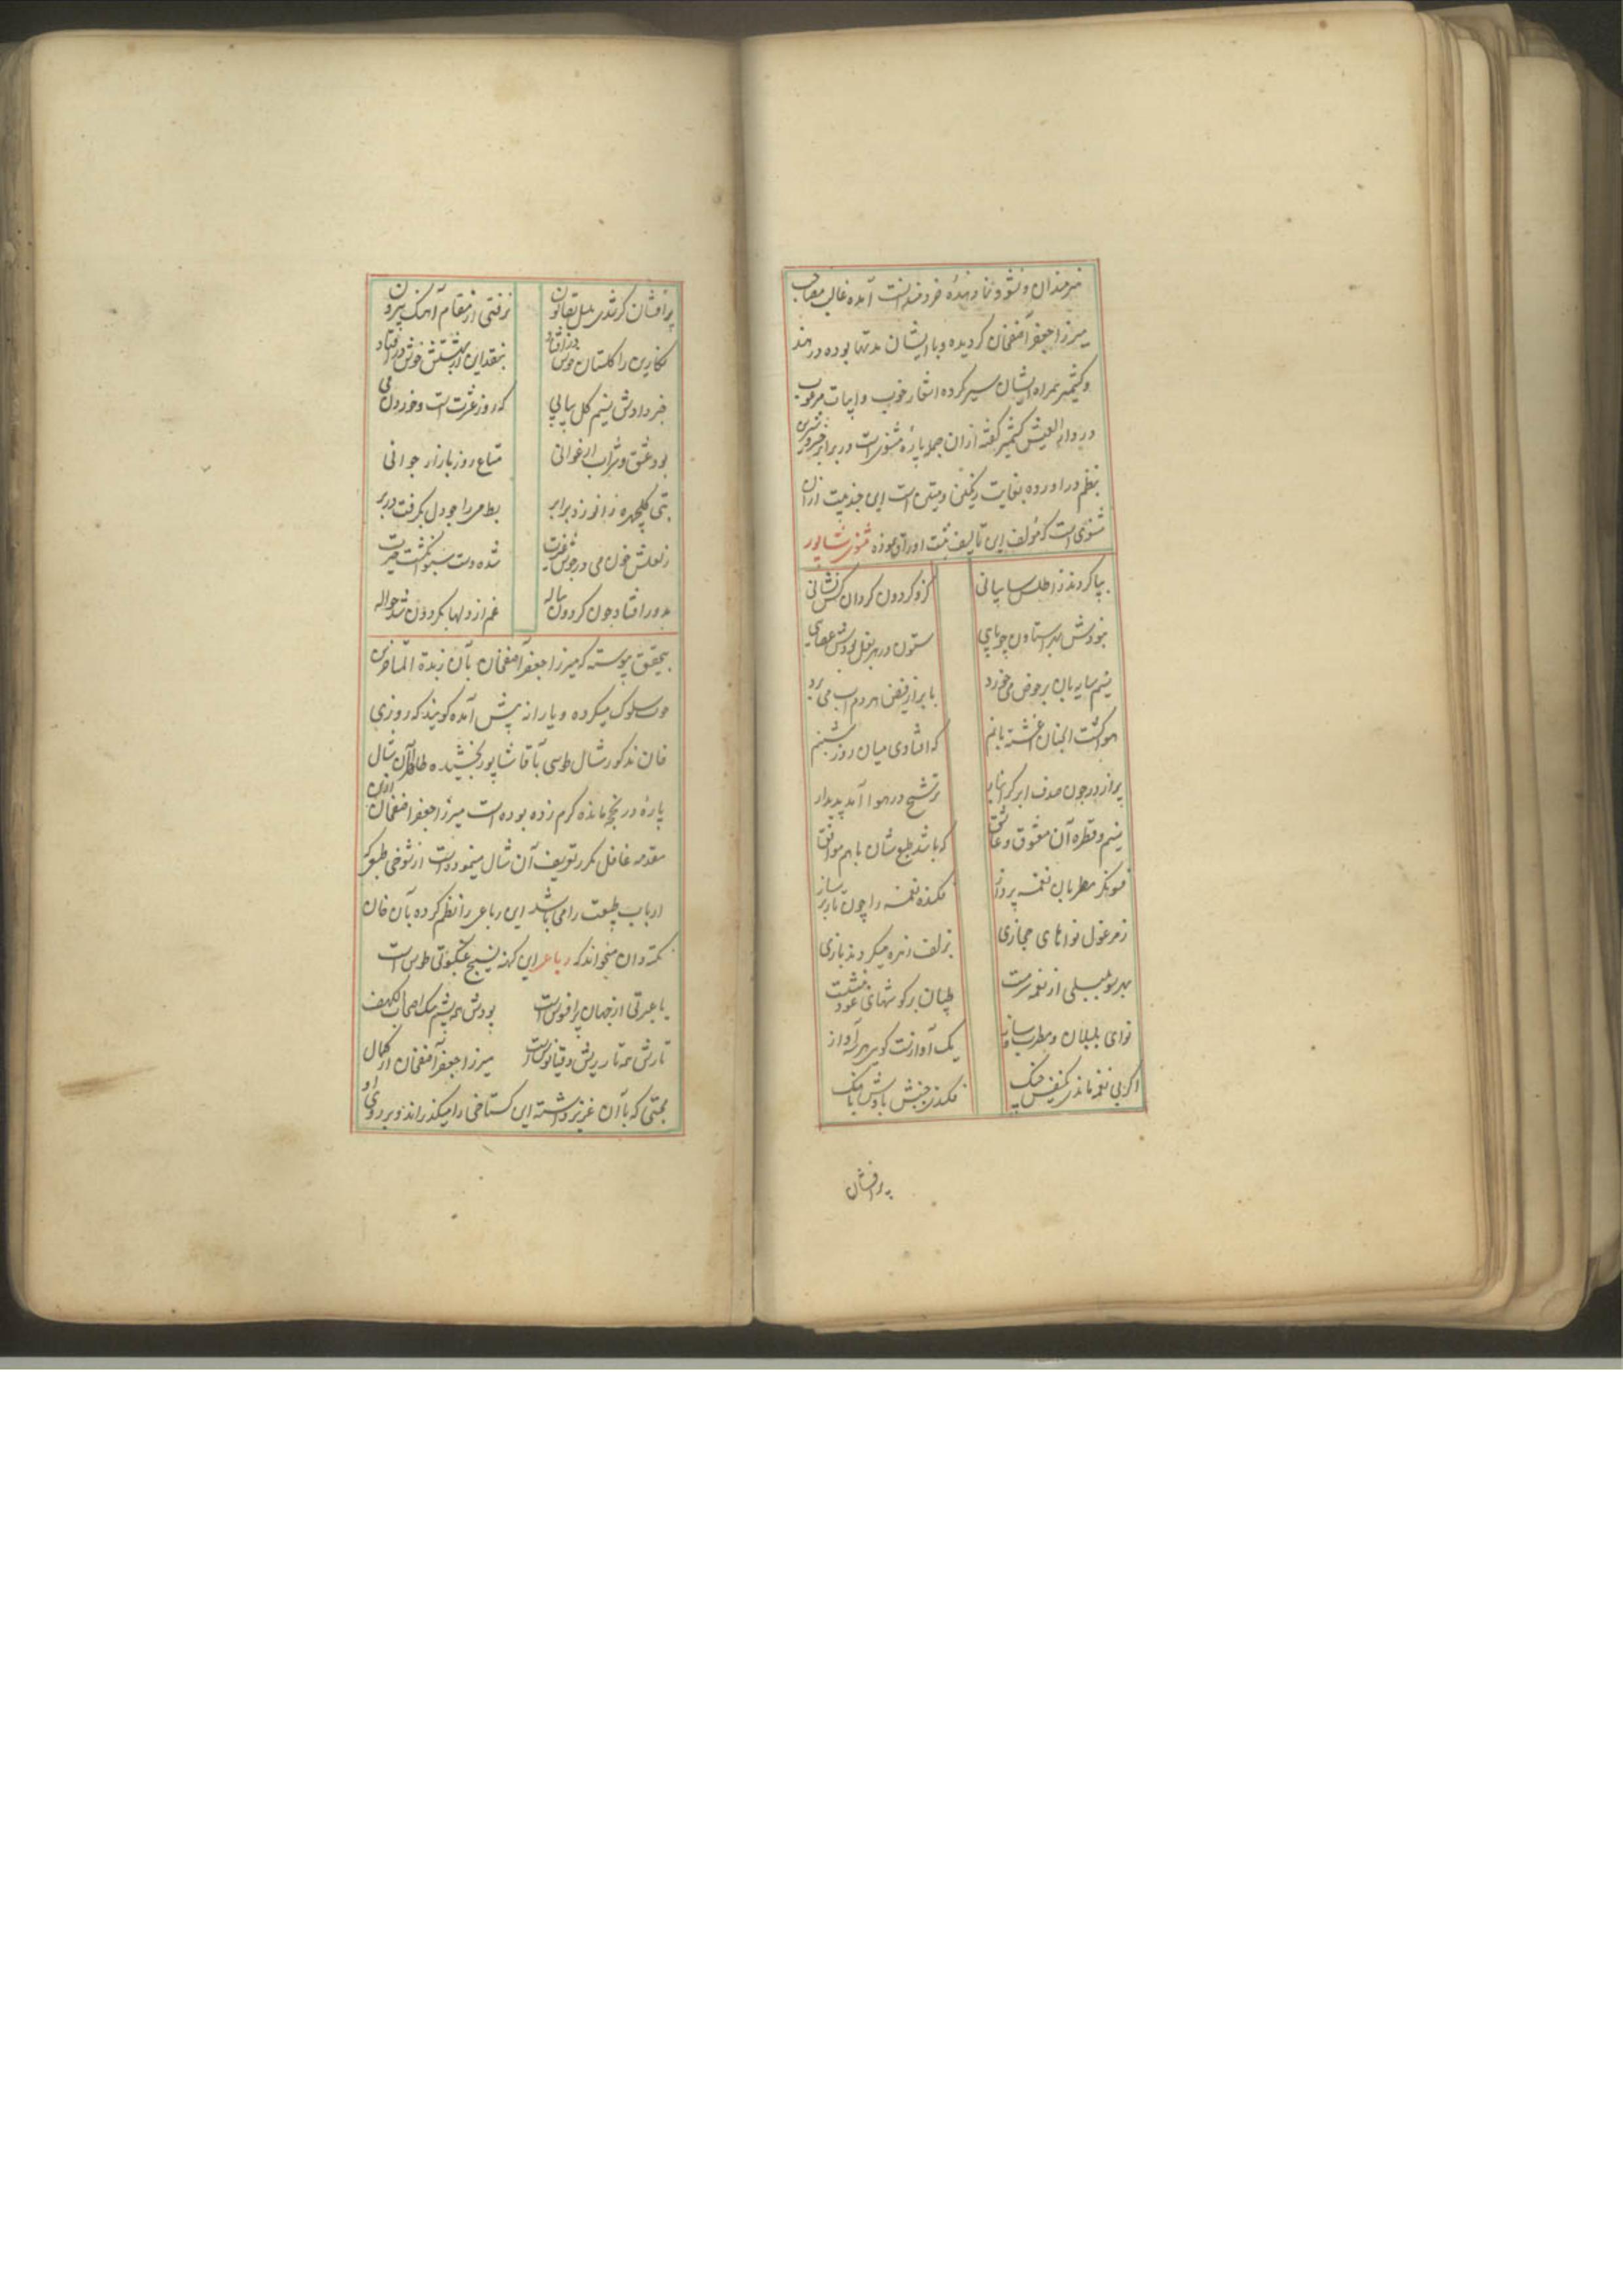 هنرمندان و نشو و نما دهنده خردمندانست آمده غالب مصاحب
میرزا جعفر آصفخان کردیده و با ایشان مدتها بوده در هند
و کشمیر همراه ایشان سیر کرده اشعار خوب و ابیات مرغوب
در دار العیش کشمیر گفته از ان جمله پارهٔ مثنوی است در برابر خسرو شیرین
بنظم در اورده بغایت رنکین و متین است این چند بیت از ان
مثنوی است که مؤلف این تالیف ثبت اوراق نموده مثنوی شاپور
بپا کردند ز اطلس سایبانی کزو کردون کردان شانی
نبودش بهر استادن چو پای ستون در هر بغل بودش عصای
نسیم سایه بان بر حوض می خورد با بر از فیض هر دم اب می برد
هوا کشت انچنان اغشته با نم که افتادی میان روز شبنم
پر از در چون صدف ابر کهربار ترشح در هوا آمد پدیدار
نسیم و قطره آن معشوق و عاشق که باشد طبع شان با هم موافق
فسونکر مطربان نغمه پرداز فکنده نغمه را چون تار بر ساز
ز مرغول نواهای حجازی بزلف زهره میکردند بازی
بهر سو بلبلی از نغمه سرمست طپان بر کوشهای عود بنشست
نوای بلبلان و مطرب و ساز یک آوازست کوی هر سه آواز
اکر بی نغمه ماندی کنفس چنک فکندی جنبش بادش باهنک
پر افشان
پر افشان کر شدی بلبل بقانون نرفتی از مقام آهنک بیرون
نکارین را کلستان خوش در افتاد بنقد این از بهشتش خوش در افتاد
خبر دادش نسیم کل پیاپی که روز عشرت است و خوردن می
بود عشق و شراب ارغوانی متاع روز بازار جوانی
بتی کلچهره زانو زد برابر بط می را چو دل بکرفت در بر
ز لعلش خون می در جوش غیرت شده دست سبو انکشت حیرت
بدور افتاد چون کردون پیاله غم از دلها بکردون شد حواله
بتحقیق پیوسته که میرزا جعفر آصفخان بآن زبدة المتاخرین
خوب سلوک میکرده و یارانه پیش آمده کویند که روزی
خان مذکور شال طوسی بآقا شاپور بخشیده ظاهرا آن شال
پارهٔ در بخچه مانده کرم زده بوده است میرزا جعفر آصفخان ازین
مقدمه غافل مکرر تعریف آن شال مینموده است از شوخی طبع که
ارباب طبیعت را می باشد این رباعی را نظم کرده بآن خان
نکته دان میخواند که رباعی این کهنه نسیج عنکبوتی طوس است
یا عبرتی از جهان پر افسوس است پودش همه پشم سک اصحاب الکهف
تارش همه تار ریش دقیانوس است میرزا جعفر آصفخان از کمال
محبتی که بآن عزیز داشته این کستاخی را میکذراند و بر روی او